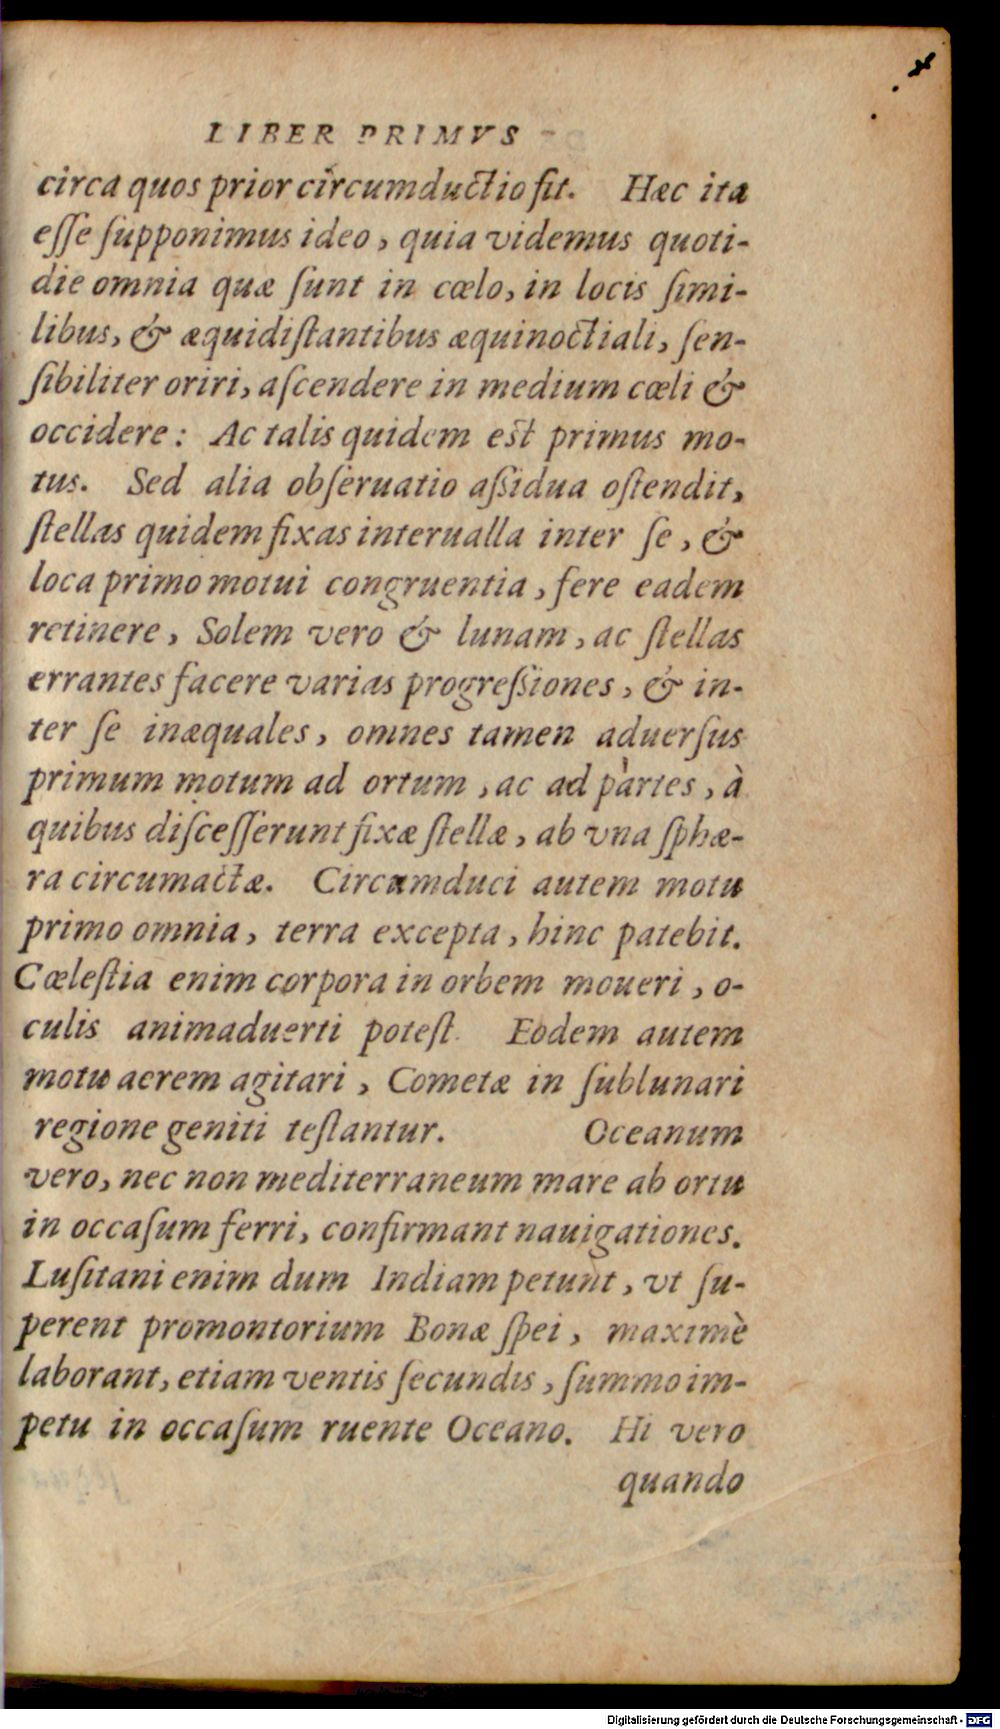 LIBER PRIMVS
circa quos prior circumductio fit. Hæc ita
eſſe ſupponimus ideo, quia videmus quoti-
die omnia quæ ſunt in cœlo, in locis ſimi-
libus, & æquidiſtantibus æquinoctiali, ſen-
ſibiliter oriri, aſcendere in medium cœli &
occidere: Ac talis quidem est primus mo-
tus. Sed alia obſeruatio aßidua oſtendit,
ſtellas quidem fixas interualla inter ſe, &
loca primo motui congruentia, fere eadem
retinere, Solem vero & lunam, ac ſtellas
errantes facere varias progreßiones, & in-
ter ſe inæquales, omnes tamen aduerſus
primum motum ad ortum, ac ad partes, à
quibus diſceſſerunt fixæ ſtellæ, ab vna ſphæ-
ra circumactæ. Circumduci autem motu
primo omnia, terra excepta, hinc patebit.
Cæleſtia enim corpora in orbem moueri, o-
culis animaduerti poteſt. Eodem autem
motu aerem agitari, Cometæ in ſublunari
regione geniti teſtantur. Oceanum
vero, nec non mediterraneum mare ab ortu
in occaſum ferri, confirmant nauigationes.
Luſitani enim dum Indiam petunt, vt ſu-
perent promontorium Bonæ ſpei, maximè
laborant, etiam ventis ſecundis, ſummo im-
petu in occaſum ruente Oceano. Hi vero
quando
Digitalisierung gefördert durch die Deutsche Forschungsgemeinschaft - DFG